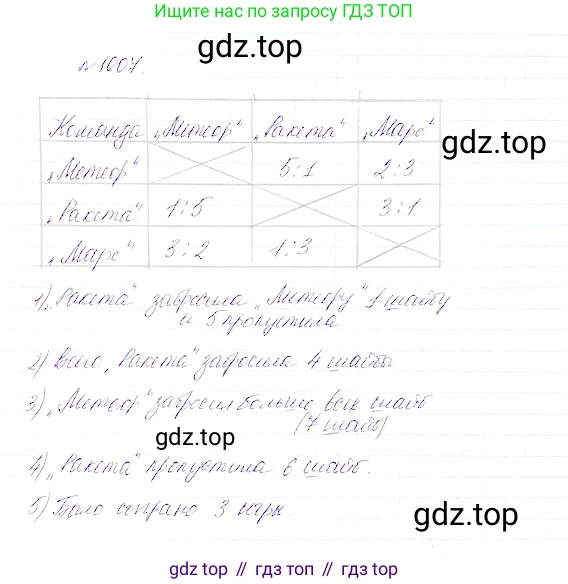 Ищите нас по запросу ГДЗ ТОП
gdz.top
№1007.
Команда „Метеор“ „Ракета“ „Марс“
gdz.top
„Метеор“ 5:1 2:3
„Ракета“ 1:5 3:1
„Марс“ 3:2 1:3
1) „Ракета“ забросила „Метеору“ 1 шайбу
и 5 пропустила
2) Всего „Ракета“ забросила 4 шайбы
3) „Метеор“ забросил больше всех шайб
(7 шайб)
gdz.top
4) „Ракета“ пропустила 6 шайб.
5) Было сыграно 3 игры
gdz.top
gdz.top // гдз топ // gdz.top // гдз топ